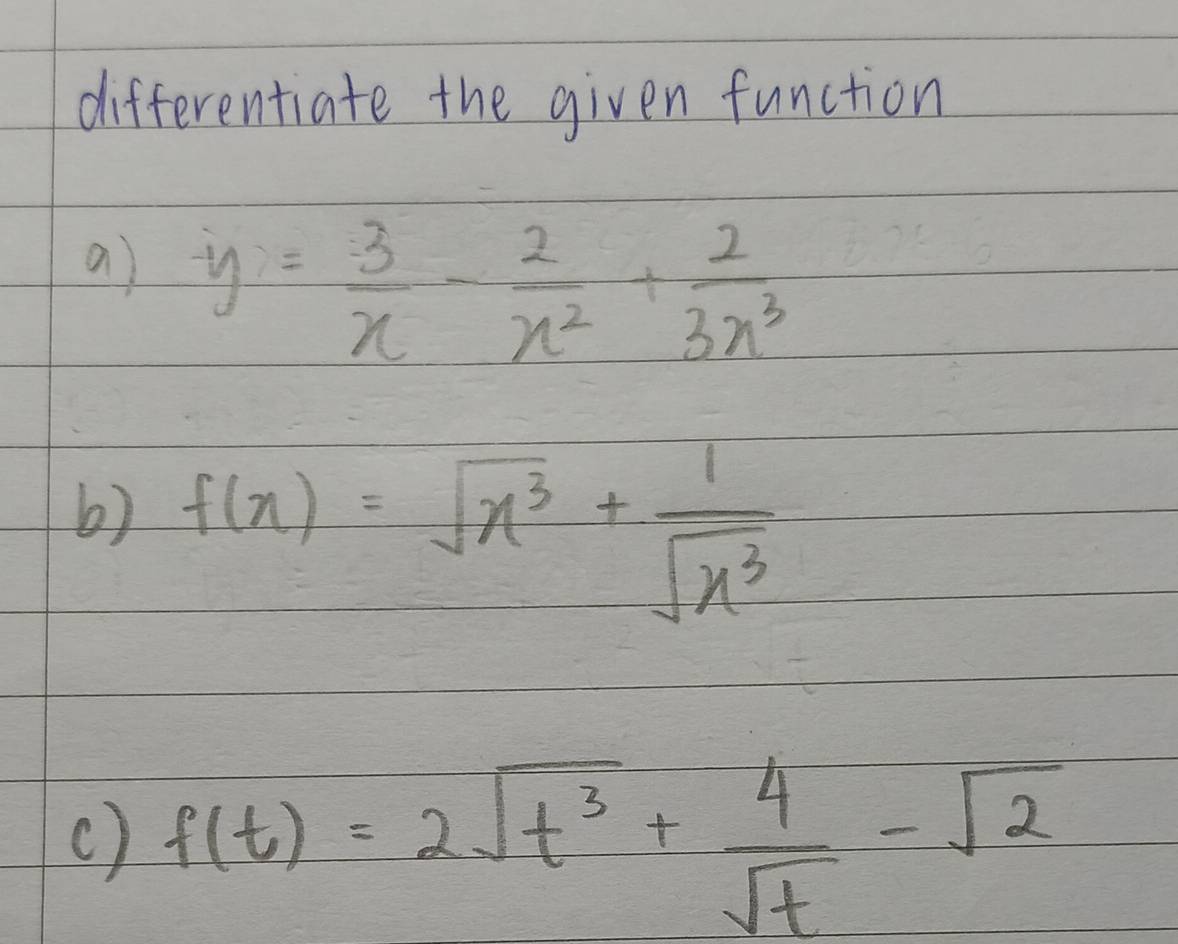 differentiate the given function
a) y = 3/x - 2/x² + 2/3x³
b) f(x) = √x³ + 1/√x³
c) f(t) = 2√t³ + 4/√t - √2